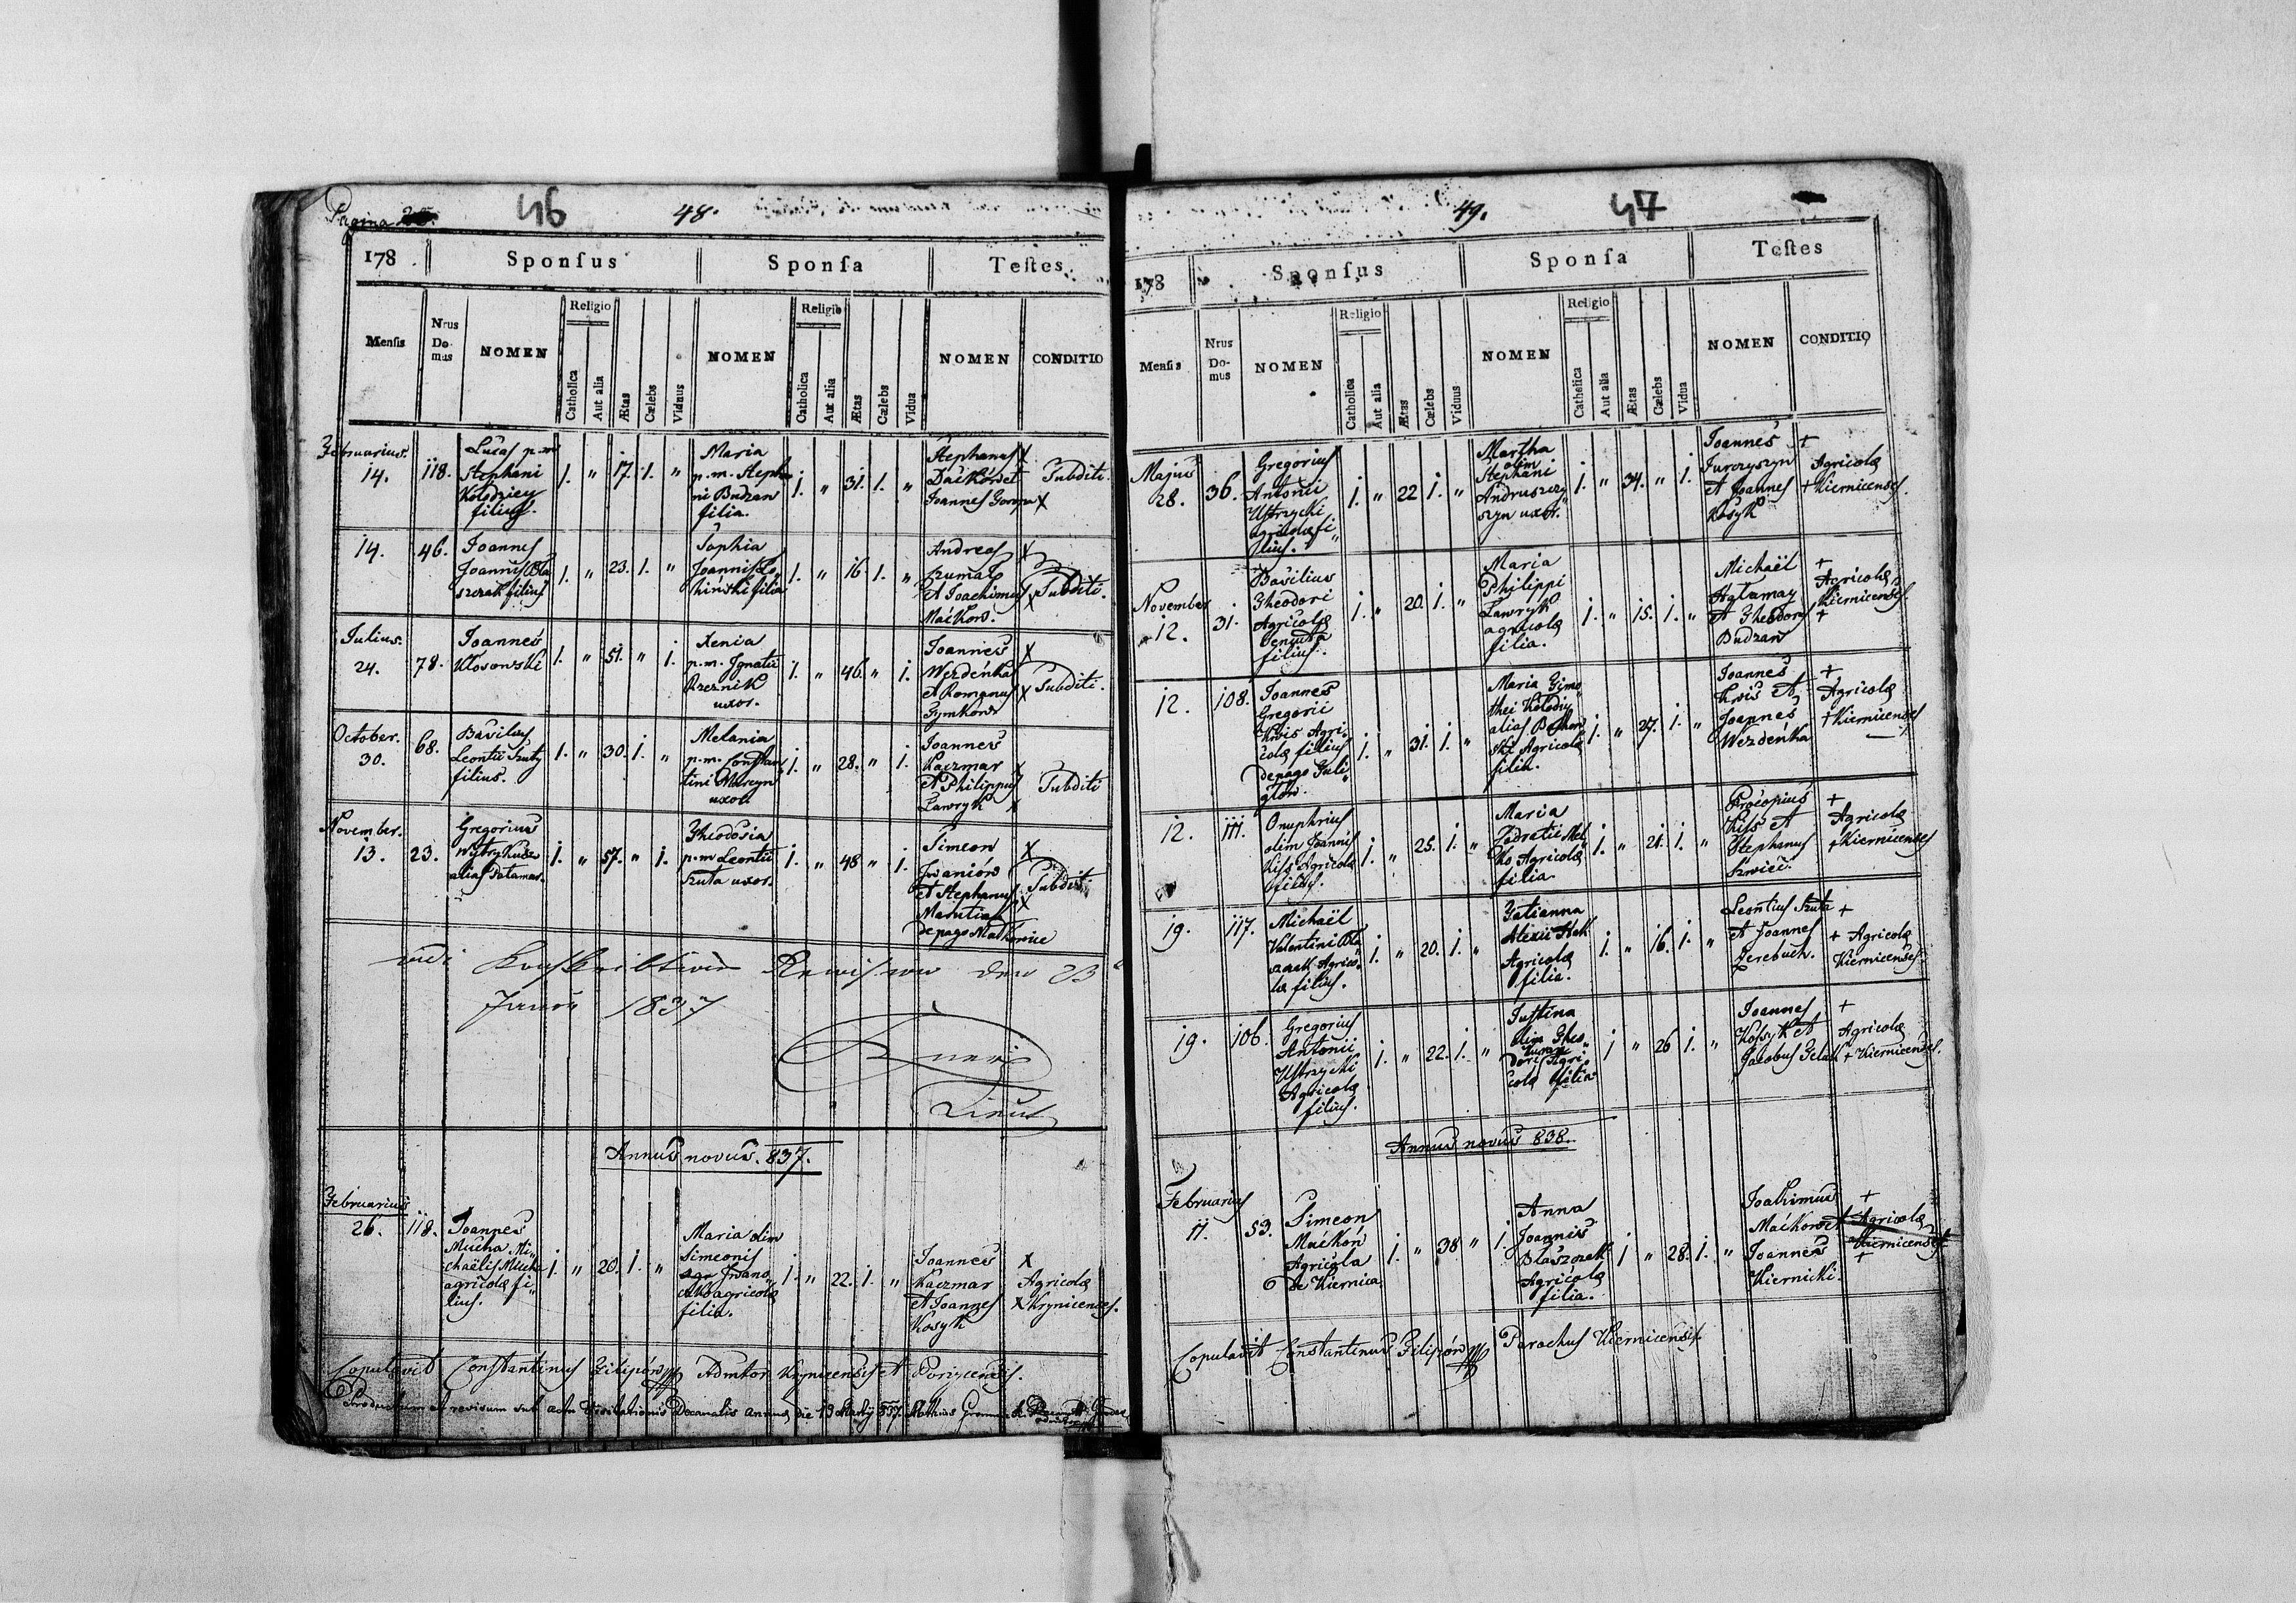 Pagina
46
48.
178 .
Sponſus
Sponſa
Teſtes
Menſis
Nrus Domus
NOMEN
Religio
Catholica
Aut alia
Ætas
Cælebs
Viduus
NOMEN
Religio
Catholica
Aut alia
Ætas
Cælebs
Vidua
NOMEN
CONDITIO
Februarius.
14. 118.
Lucas p.m
Stephani
Kołodziey
filius.
1. " 17. 1. "
Maria
p.m. Stepha
ni Budzan
filia.
1. " 31. 1. "
Stephanus X
Daćków et
Joannes X
Subditi.
14. 46.
Joannes
Joannis Bła
szczak filius
1. " 23. 1. "
Sophia
Joannis Ło
zinski filia
1. " 16. 1. "
Andreas X
Szumał
et Joachimus X
Maćków.
Subditi.
Julius.
24. 78.
Joannes
Kłosowski
1. " 51. " 1.
Xenia
p.m. Ignatii
Rzeznik
uxor.
1. " 46. " 1.
Joannes X
Wezdeńka
et Romanus X
Tymków
Subditi.
October.
30. 68.
Basilius
Leontii Szuty
filius.
1. " 30. 1. "
Melania
p.m. Constan
tini Marcyn
uxor.
1. " 28. " 1.
Joannes
Kaczmar X
et Philippus
Ławryk X
Subditi
November.
13. 23.
Gregorius
Wytrykusz
alias Patamar.
1. " 57. " 1.
Theodosia
p.m Leontii
Szuta uxor.
1. " 48 " 1.
Simeon X
Iwaniów
et Stephanus X
Maksutiak
de pago Malkowice
Subditi.
vidi Konskribtions Revision den 23
Januar 1837
Lieut
Annus novus. 837.
Februarius
26. 118.
Joannes
Mucha Mi„
chaëlis Mucha
agricolæ fi„
lius.
1. " 20. 1. "
Maria olim
Simeonis
Iwano
agricolæ
filia.
1. " 22. 1. "
Joannes X
Kaczmar
et Joannes X
Kosyk
Agricolæ
Krynicenses.
Copulavit Constantinus Filipów Admtor Krynicensis et Porzycensis.
Productum et revisum sub actu Visitationis Decanalis annuæ die 13 Martij 837.
49.
47
178
Sponſus
Sponſa
Teſtes
Menſis
Nrus Domus
NOMEN
Religio
Catholica
Aut alia
Ætas
Cælebs
Viduus
NOMEN
Religio
Catholica
Aut alia
Ætas
Cælebs
Vidua
NOMEN
CONDITIO
Majus
28. 36.
Gregorius
Antonii
Ustrzycki
agricolæ fi„
lius.
1. " 22 1. "
Martha
olim
Stephani
Andruszczy
szyn uxor.
1. " 34. " 1.
Joannes +
Jurczyszyn
et Joannes +
Kosyk
Agricolæ
Kiernicenses.
November
12. 31.
Basilius
Theodori
Agricolæ
Seniuta
filius.
1. " 20. 1. "
Maria
Philippi
Ławryk
agricolæ
filia.
1. " 15. 1. "
Michaël +
Hatamay
et Theodorus +
Budzan
Agricolæ
Kiernicenses.
12. 108.
Joannes
Gregorii
Kwis Agri„
colæ filius
de pago Puli„
1. " 31. 1. "
Maria Timo
thei Kołodiy
alias
Agricolæ
filia.
1. " 27. 1. "
Joannes +
Kwis et
Joannes +
Wezdeńka
Agricolæ
Kiernicenses
12. 111.
Onuphrius
olim Joannis
Kiss Agricolæ
filius.
1. " 25. 1. "
Maria
Kodratii Mel
ko Agricolæ
filia.
1. " 21. 1. "
Procopius +
Kiss et
Stephanus +
Szwiec.
Agricolæ
Kiernicenses
19. 117.
Michaël
Valentini Bła
szczak Agrico„
læ filius.
1. " 20. 1. "
Tatianna
Alexii Stek
Agricolæ
filia.
1. " 16. 1. "
Leontius Szuta +
et Joannes +
Terebuch.
Agricolæ
Kiernicenses.
19. 106.
Gregorius
Antonii
Ustrzycki
Agricolæ
filius.
1. " 22. 1. "
Justina
olim Theo„
dori Agri„
colæ filia
1 " 26 1. "
Joannes +
Kosyk et
Jacobus +
Agricolæ
Kiernicenses.
Annus novus 838.
Februarius
11. 53.
Simeon
Maćków
Agricola
de Kiernica
1. " 38 " 1.
Anna
Joannis
Błaszczak
Agricolæ
filia.
1 " 28. 1. "
Joakimus +
Maćkow et
Joannes +
Kiernicki.
Agricolæ
Kiernicenses
Copulavit Constantinus Filipów Parochus Kiernicensis.